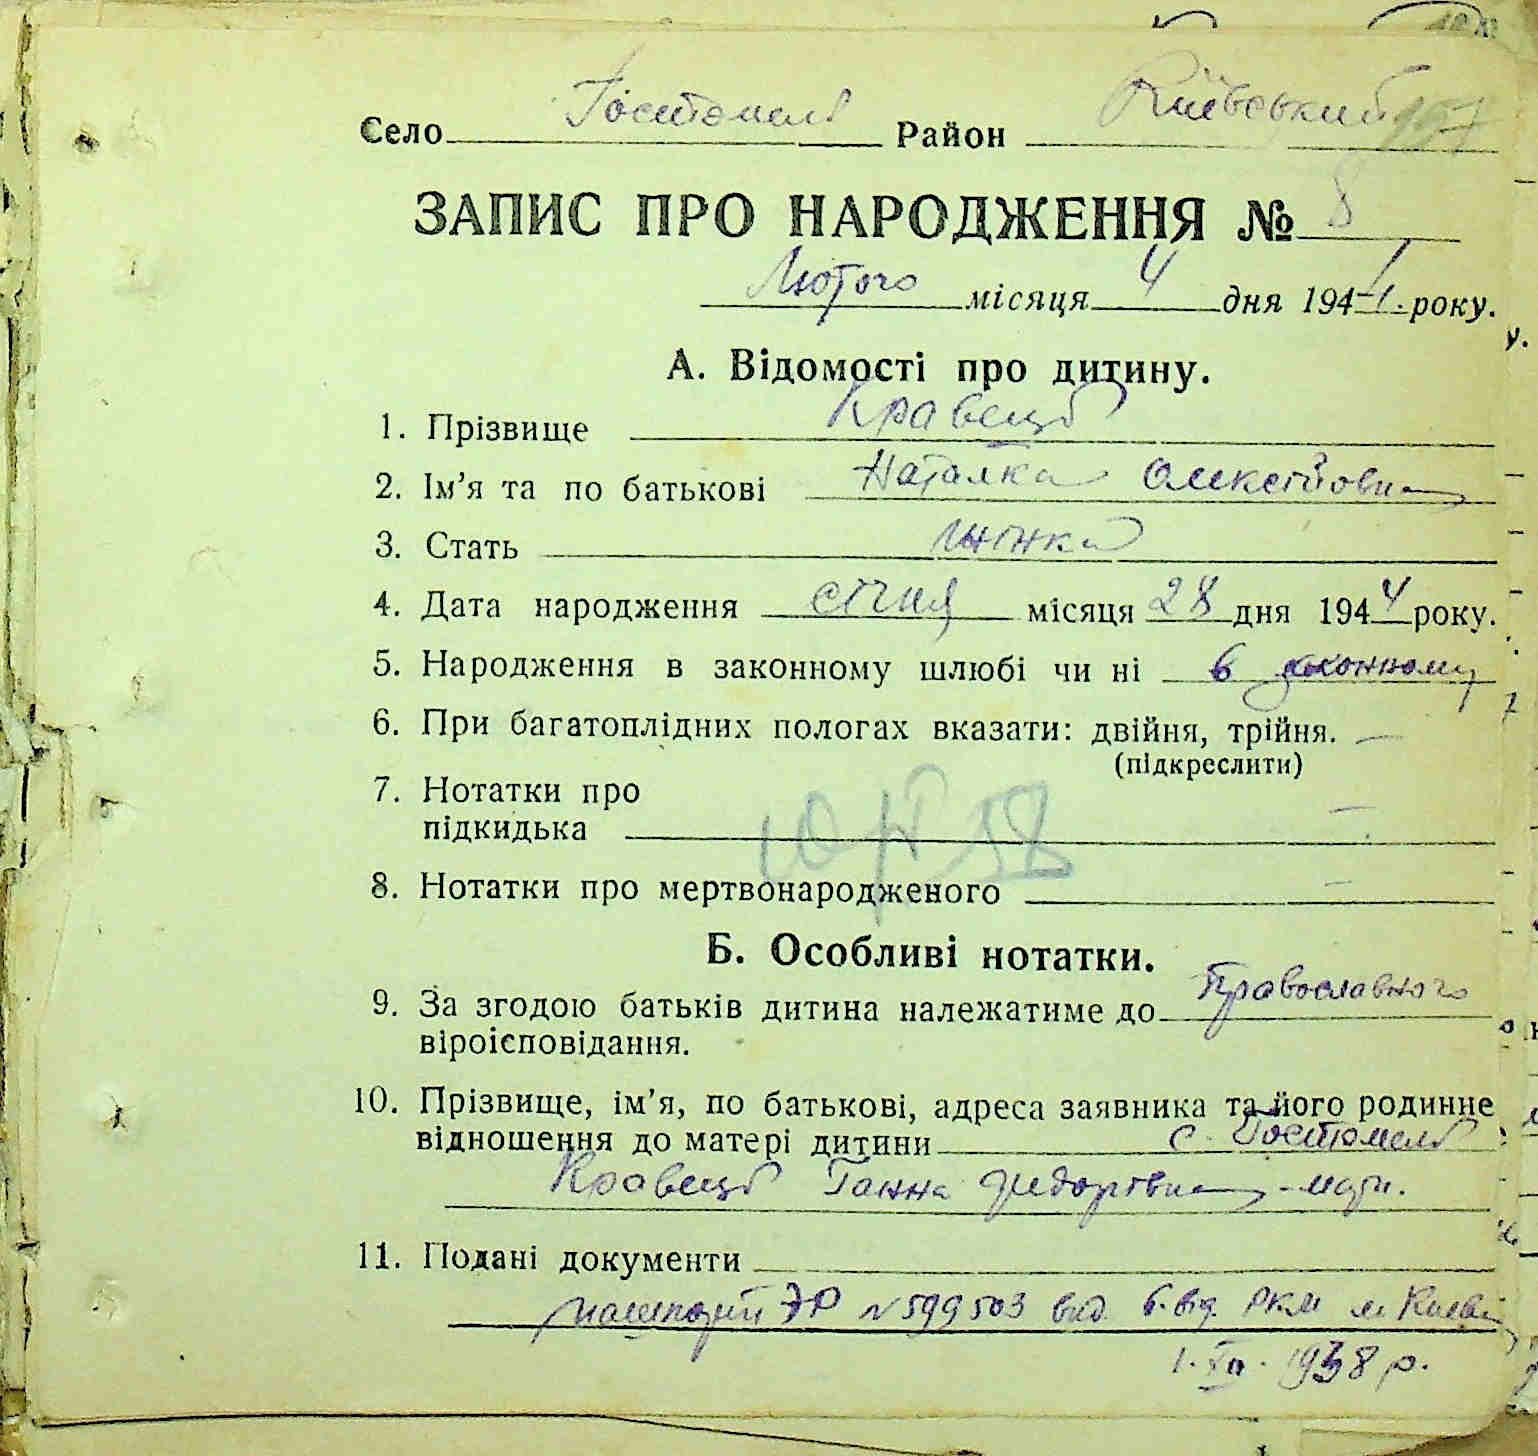 Село Гостомель Район Київський
ЗАПИС ПРО НАРОДЖЕННЯ № 8
Лютого місяця 4 дня 194 року.
А. Відомості про дитину.
1. Прізвище Кравець
2. Ім'я та по батькові Наталка Олексіївна
3. Стать жінка
4. Дата народження січня місяця 28 дня 1944 року.
5. Народження в законному шлюбі чи ні в законному
6. При багатоплідних пологах вказати: двійня, трійня. —
(підкреслити)
7. Нотатки про
підкидька —
8. Нотатки про мертвонародженого —
Б. Особливі нотатки.
9. За згодою батьків дитина належатиме до Православного
віроісповідання.
10. Прізвище, ім'я, по батькові, адреса заявника та його родинне
відношення до матері дитини с. Гостомель
Кравець Ганна -мати.
11. Подані документи
пашпорт ЭР №599503 вид. 6. від. РКМ м Києві
1. XII. 1938 р.